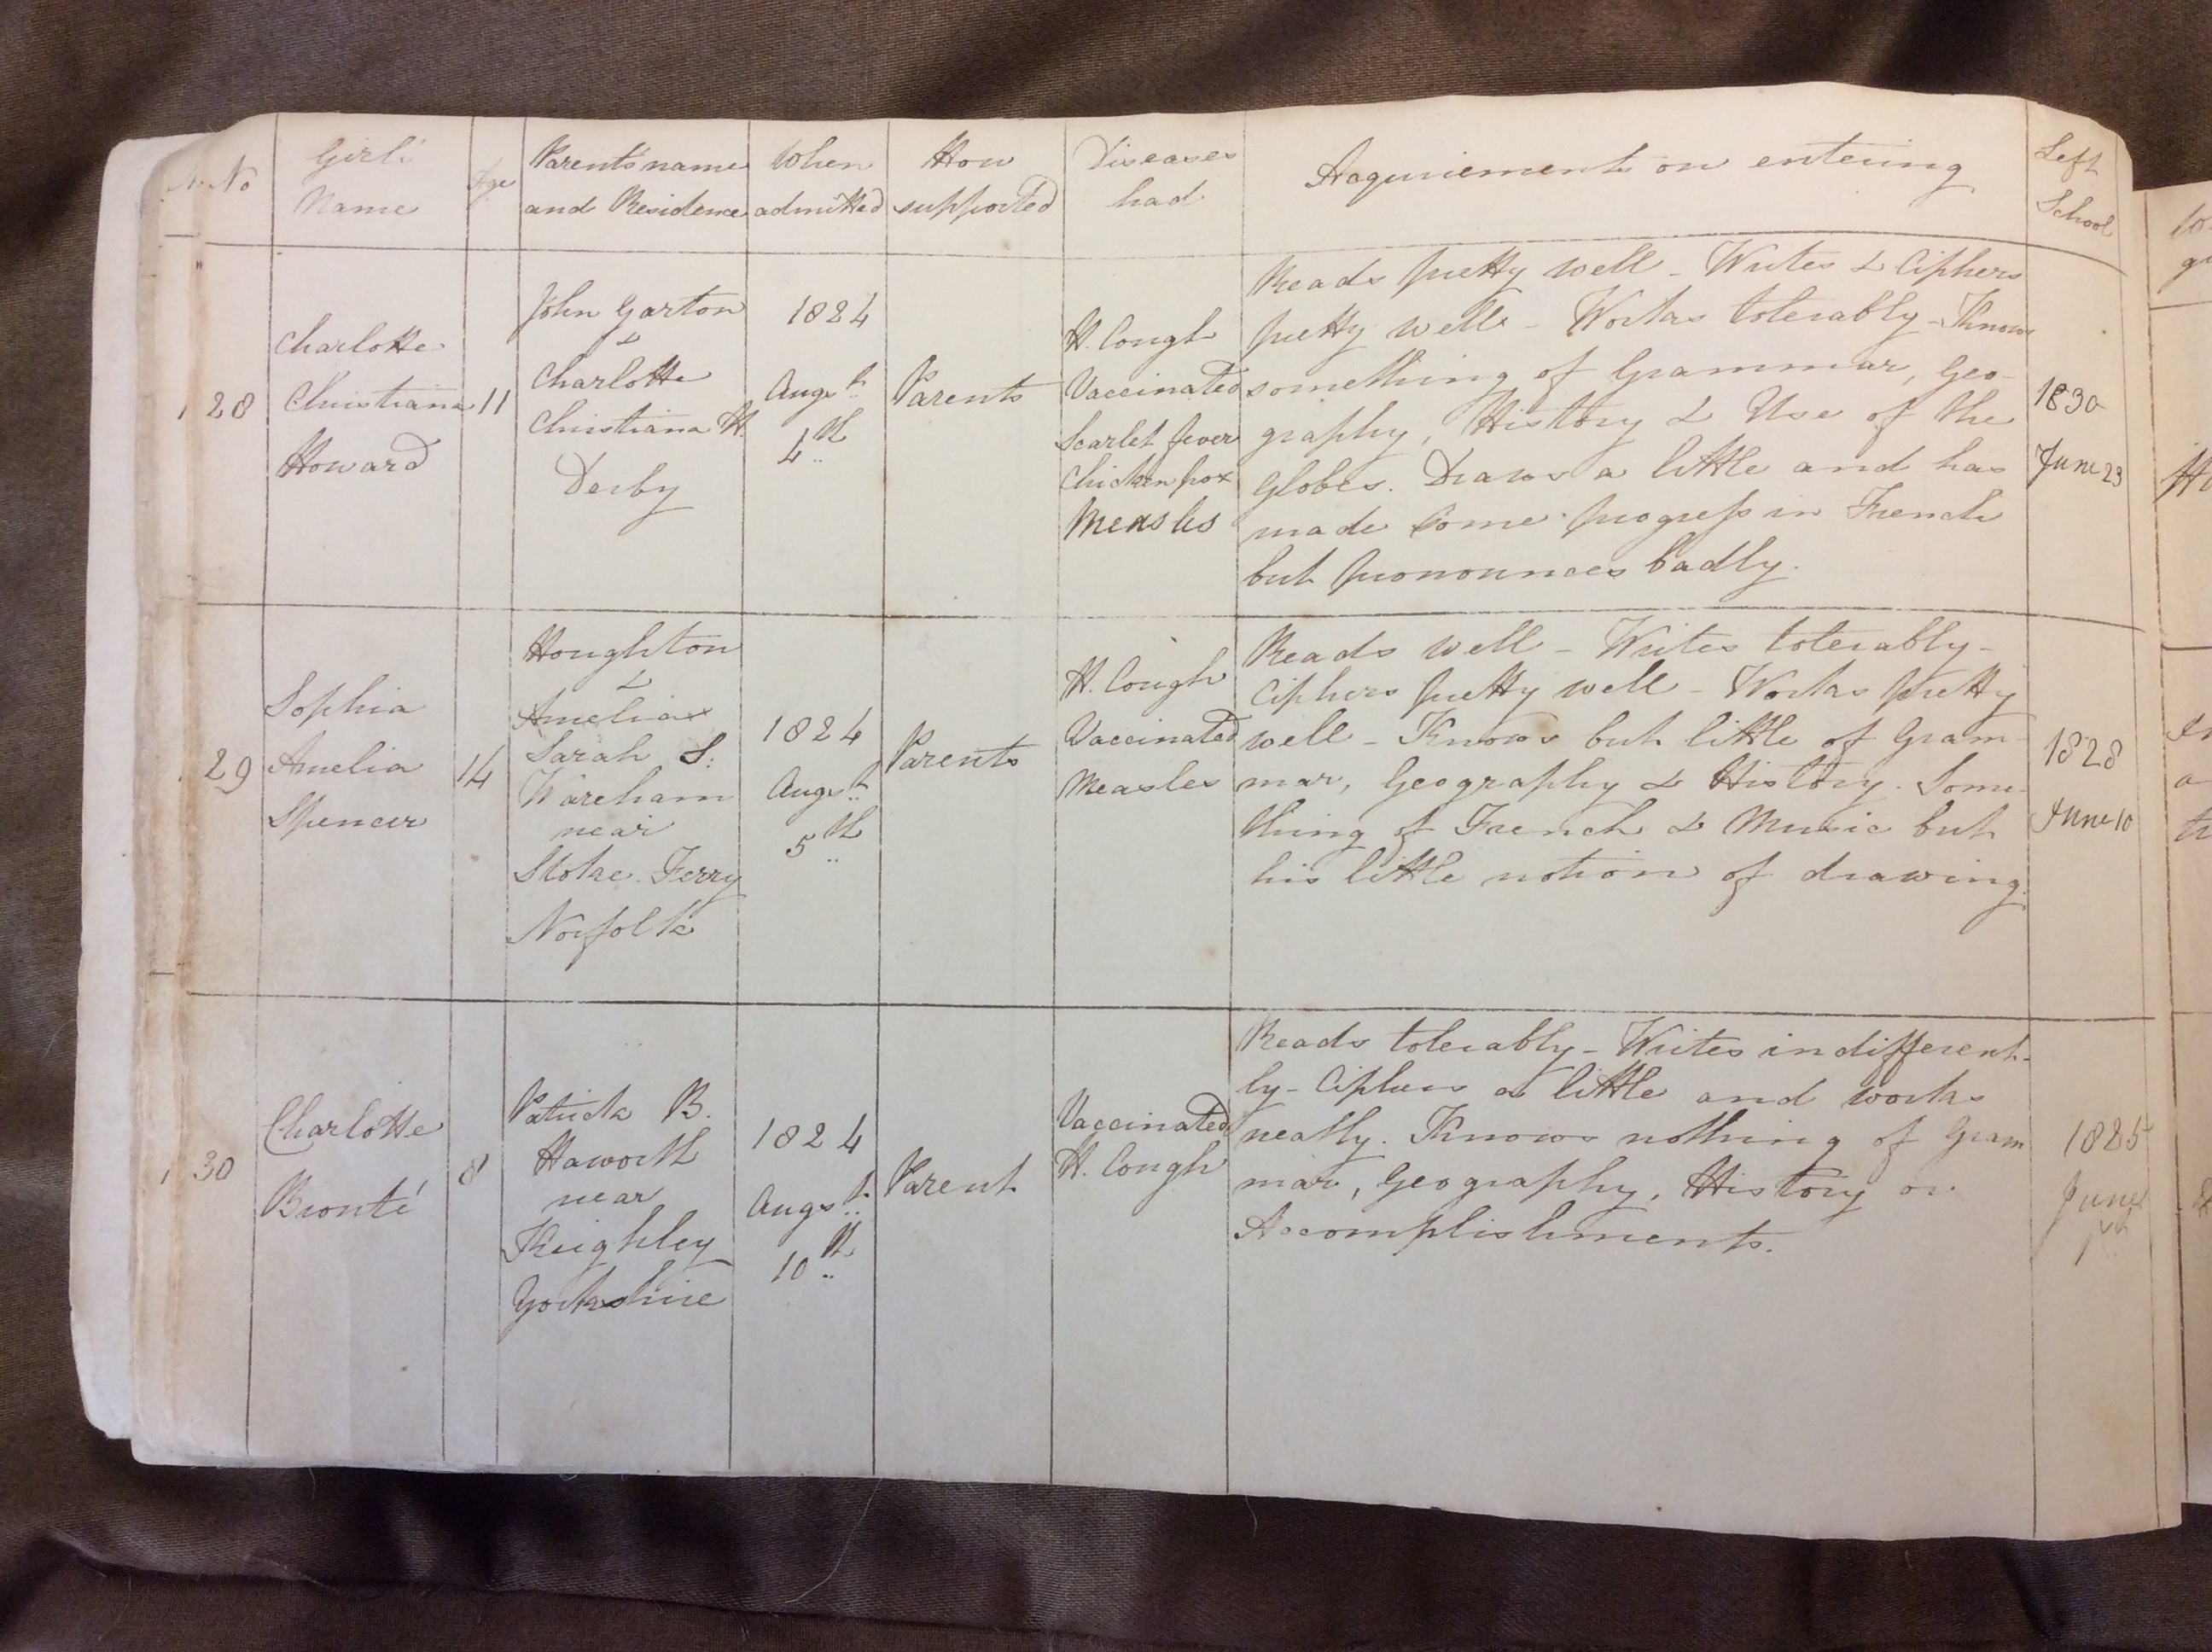 No
Girls
Name
Age
Parents name
and Residence
When
admitted
How
supported
Diseases
had
Acquirements on entering
Left
School
28
Charlotte
Christiana
Howard
11
John Garton
&
Charlotte
Christiana H.
Derby
1824
Augst
4th
Parents
H. Cough
Vaccinated
Scarlet fever
Chicken pox
Measles
Reads pretty well - Writes & Ciphers
pretty well - Works tolerably - Knows
something of Grammar, Geo-
graphy, History & Use of the
Globes. Draws a little and has
made some progress in French
but pronounces badly.
1830
June 23
29
Sophia
Amelia
Spencer
14
Houghton
&
Amelia
Sarah S:
Wareham
near
Stoke Ferry
Norfolk
1824
Augst
5th
Parents
H. Cough
Vaccinated
Measles
Reads well - Writes tolerably -
Ciphers pretty well - Works pretty
well - Knows but little of Gram-
mar, Geography & History. Some-
thing of French & Music but
his little notion of drawing.
1828
June 10
30
Charlotte
Bronté
8
Patrick B.
Haworth
near
Keighley
Yorkshire
1824
Augst
10th
Parent
Vaccinated
H. Cough
Reads tolerably - Writes indifferent-
ly - Ciphers a little and works
neatly. Knows nothing of Gram
mar, Geography, History or
Accomplishments.
1825
June
1st